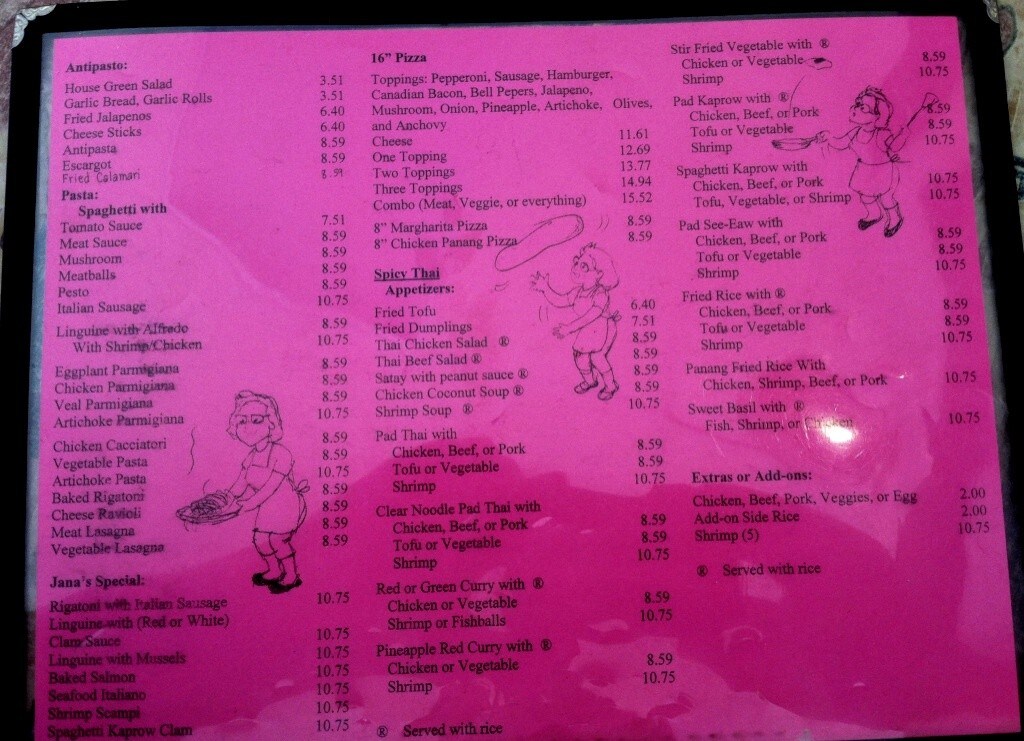 Antipasto:
House Green Salad 3.51
Garlic Bread, Garlic Rolls 3.51
Fried Jalapenos 6.40
Cheese Sticks 6.40
Antipasta 8.59
Escargot 8.59
Fried Calamari 8.59
Pasta:
Spaghetti with
Tomato Sauce 7.51
Meat Sauce 8.59
Mushroom 8.59
Meatballs 8.59
Pesto 8.59
Italian Sausage 10.75
Linguine with Alfredo 8.59
With Shrimp/Chicken 10.75
Eggplant Parmigiana 8.59
Chicken Parmigiana 8.59
Veal Parmigiana 8.59
Artichoke Parmigiana 10.75
Chicken Cacciatori 8.59
Vegetable Pasta 8.59
Artichoke Pasta 10.75
Baked Rigatoni 8.59
Cheese Ravioli 8.59
Meat Lasagna 8.59
Vegetable Lasagna 8.59
Jana's Special:
Rigatoni with Italian Sausage 10.75
Linguine with (Red or White)
Clam Sauce 10.75
Linguine with Mussels 10.75
Baked Salmon 10.75
Seafood Italiano 10.75
Shrimp Scampi 10.75
Spaghetti Kaprow Clam 10.75
16” Pizza
Toppings: Pepperoni, Sausage, Hamburger,
Canadian Bacon, Bell Pepers, Jalapeno,
Mushroom, Onion, Pineapple, Artichoke, Olives,
and Anchovy
Cheese 11.61
One Topping 12.69
Two Toppings 13.77
Three Toppings 14.94
Combo (Meat, Veggie, or everything) 15.52
8” Margharita Pizza 8.59
8” Chicken Panang Pizza 8.59
Spicy Thai
Appetizers:
Fried Tofu 6.40
Fried Dumplings 7.51
Thai Chicken Salad ® 8.59
Thai Beef Salad ® 8.59
Satay with peanut sauce ® 8.59
Chicken Coconut Soup ® 8.59
Shrimp Soup ® 10.75
Pad Thai with
Chicken, Beef, or Pork 8.59
Tofu or Vegetable 8.59
Shrimp 10.75
Clear Noodle Pad Thai with
Chicken, Beef, or Pork 8.59
Tofu or Vegetable 8.59
Shrimp 10.75
Red or Green Curry with ®
Chicken or Vegetable 8.59
Shrimp or Fishballs 10.75
Pineapple Red Curry with ®
Chicken or Vegetable 8.59
Shrimp 10.75
® Served with rice
Stir Fried Vegetable with ®
Chicken or Vegetable 8.59
Shrimp 10.75
Pad Kaprow with ®
Chicken, Beef, or Pork 8.59
Tofu or Vegetable 8.59
Shrimp 10.75
Spaghetti Kaprow with
Chicken, Beef, or Pork 10.75
Tofu, Vegetable, or Shrimp 10.75
Pad See-Eaw with
Chicken, Beef, or Pork 8.59
Tofu or Vegetable 8.59
Shrimp 10.75
Fried Rice with ®
Chicken, Beef, or Pork 8.59
Tofu or Vegetable 8.59
Shrimp 10.75
Panang Fried Rice With
Chicken, Shrimp, Beef, or Pork 10.75
Sweet Basil with ®
Fish, Shrimp, or Chicken 10.75
Extras or Add-ons:
Chicken, Beef, Pork, Veggies, or Egg 2.00
Add-on Side Rice 2.00
Shrimp (5) 10.75
® Served with rice